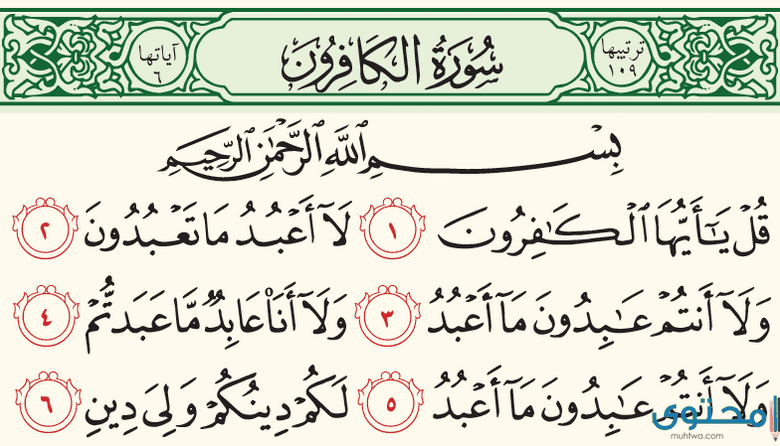 ترتيبها
١٠٩
سُورَةُ الكَافِرُونَ
آياتها
٦
بِسْمِ ٱللَّهِ ٱلرَّحْمَٰنِ ٱلرَّحِيمِ
قُلْ يَٰٓأَيُّهَا ٱلْكَٰفِرُونَ ١ لَآ أَعْبُدُ مَا تَعْبُدُونَ ٢
وَلَآ أَنتُمْ عَٰبِدُونَ مَآ أَعْبُدُ ٣ وَلَآ أَنَا۠ عَابِدٌ مَّا عَبَدتُّمْ ٤
وَلَآ أَنتُمْ عَٰبِدُونَ مَآ أَعْبُدُ ٥ لَكُمْ دِينُكُمْ وَلِىَ دِينِ ٦
محتوى
muhtwa.com